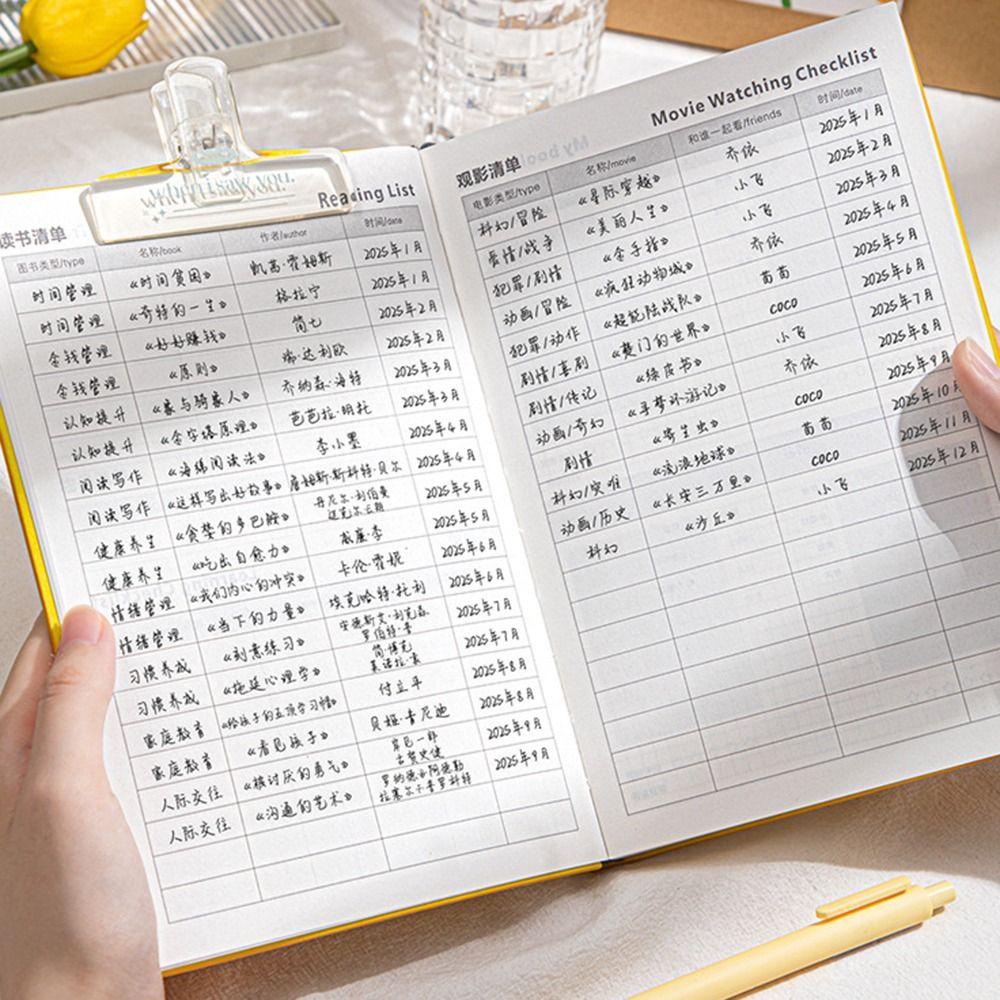 When I saw you,
读书清单 Reading List
图书类型/type 名称/book 作者/author 时间/date
时间管理 《时间贫困》 凯茜·霍姆斯 2025年1月
时间管理 《奇特的一生》 格拉宁 2025年1月
金钱管理 《好好赚钱》 简七 2025年2月
金钱管理 《原则》 瑞·达利欧 2025年2月
认知提升 《象与骑象人》 乔纳森·海特 2025年3月
认知提升 《金字塔原理》 芭芭拉·明托 2025年3月
阅读写作 《海绵阅读法》 李小墨 2025年4月
阅读写作 《这样写出好故事》 詹姆斯·斯科特·贝尔 2025年4月
健康养生 《贪婪的多巴胺》 丹尼尔·利伯曼 2025年5月
健康养生 《吃出自愈力》 威廉·李 2025年5月
情绪管理 《我们内心的冲突》 卡伦·霍妮 2025年6月
情绪管理 《当下的力量》 埃克哈特·托利 2025年6月
习惯养成 《刻意练习》 2025年7月
习惯养成 《拖延心理学》 简·博克 莱诺拉·袁 2025年7月
家庭教育 《给孩子的五项学习棒》 付立平 2025年8月
家庭教育 《看见孩子》 贝姬·肯尼迪 2025年8月
人际交往 《被讨厌的勇气》 岸见一郎 古贺史健 2025年9月
人际交往 《沟通的艺术》 2025年9月
观影清单 Movie Watching Checklist
电影类型/type 名称/movie 和谁一起看/friends 时间/date
科幻/冒险 《星际穿越》 乔依 2025年1月
爱情/战争 《美丽人生》 小飞 2025年2月
犯罪/剧情 《金手指》 小飞 2025年3月
动画/冒险 《疯狂动物城》 乔依 2025年4月
犯罪/动作 《超能陆战队》 苗苗 2025年5月
剧情/喜剧 《楚门的世界》 coco 2025年6月
剧情/传记 《绿皮书》 小飞 2025年7月
动画/奇幻 《寻梦环游记》 乔依 2025年8月
剧情 《寄生虫》 coco 2025年9月
科幻/灾难 《流浪地球》 苗苗 2025年10月
动画/历史 《长安三万里》 coco 2025年11月
科幻 《沙丘》 小飞 2025年12月